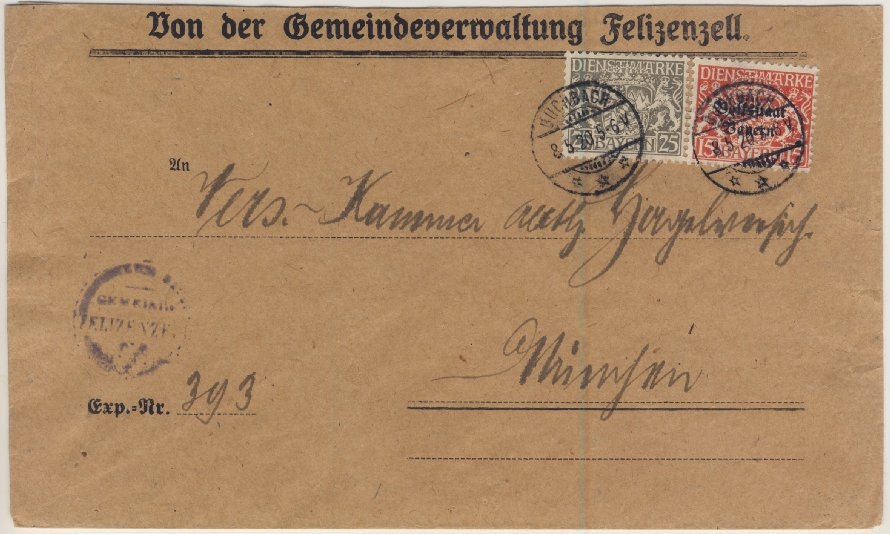 Von der Gemeindeverwaltung Felizenzell.
DIENSTMARKE
25 BAYERN 25
DIENSTMARKE
Volksstaat
Bayern
15 BAYERN 15
BUCHBACH
8 5 20 5-6 V
8 5 20
An
Vers.-Kammer Abth. Hagelversich.
München
GEMEINDE
FELIZENZE
Exp.-Nr. 393